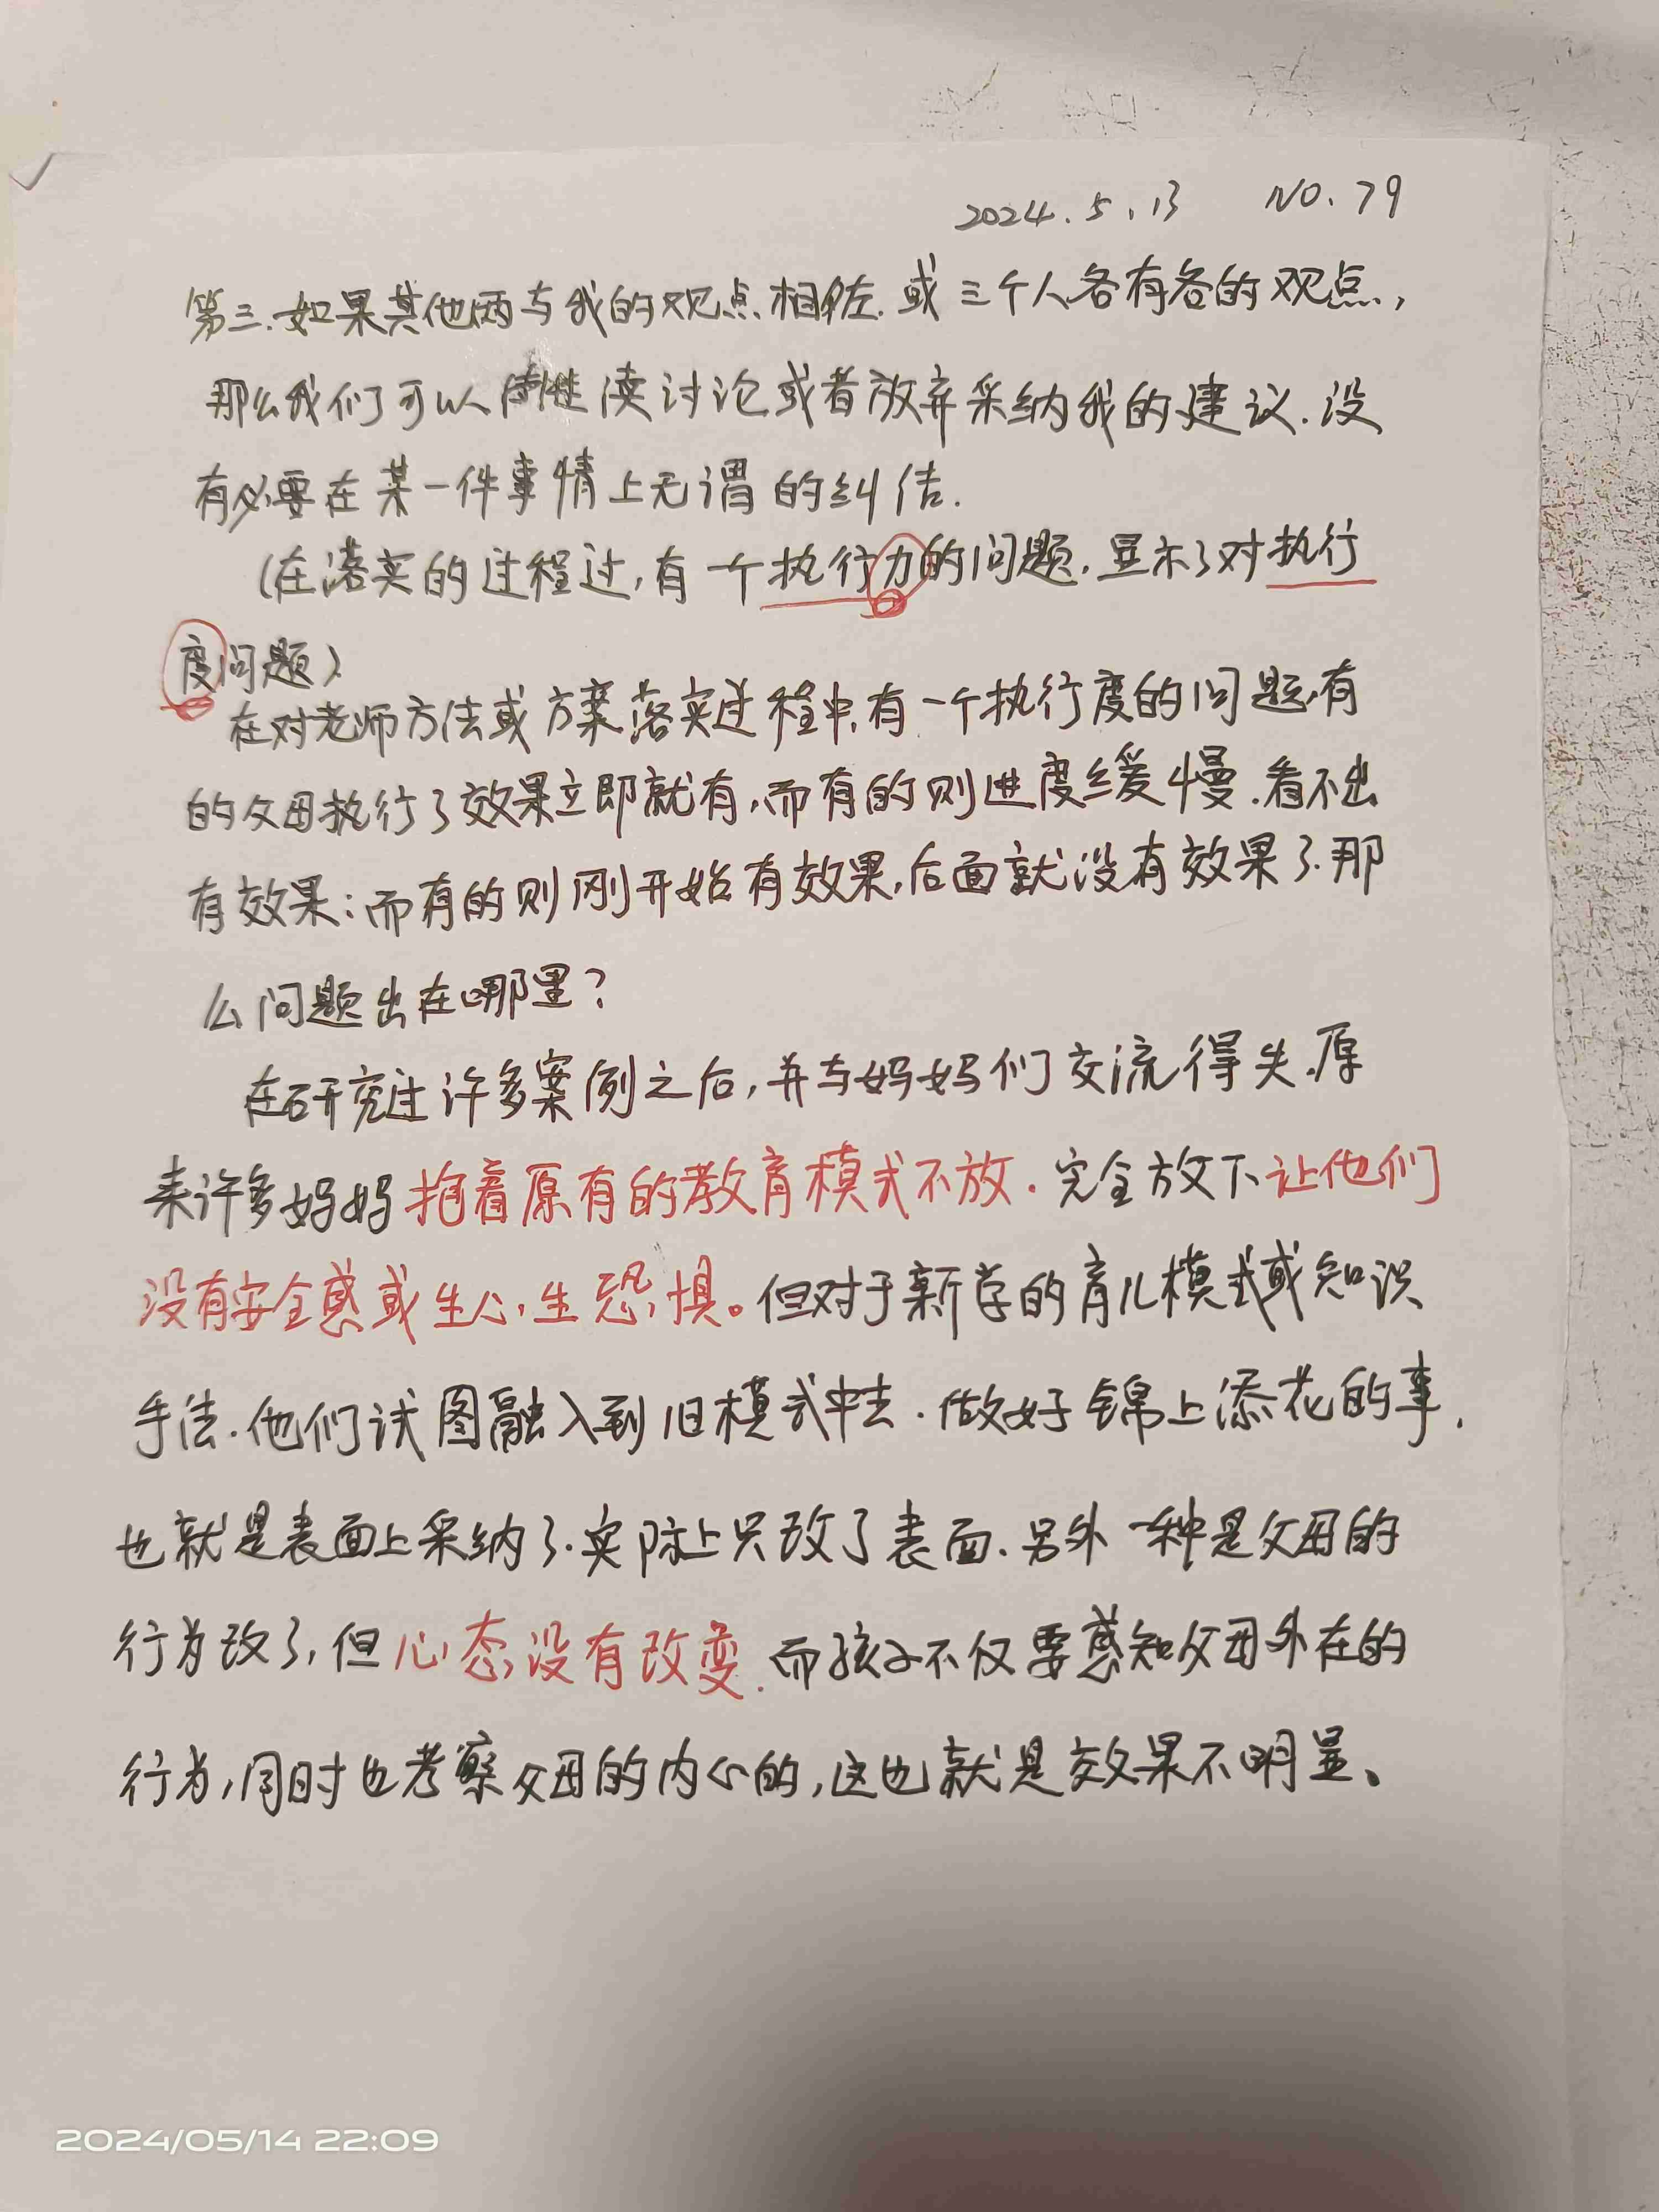 2024.5.13 NO.79
第三.如果其他两与我的观点相佐.或三个人各有各的观点,
那么我们可以继续讨论或者放弃采纳我的建议.没
有必要在某一件事情上无谓的纠结.
(在落实的过程过,有一个执行力的问题.显示了对执行
度问题)
在对老师方法或方案落实过程中,有一个执行度的问题,有
的父母执行了效果立即就有,而有的则进度缓慢.看不出
有效果;而有的则刚开始有效果,后面就没有效果了.那
么问题出在哪里?
在研究过许多案例之后,并与妈妈们交流得失.原
来许多妈妈抱着原有的教育模式不放.完全放下让他们
没有安全感或生心生恐惧。但对于新学的育儿模式或知识
手法.他们试图融入到旧模式中去.做好锦上添花的事.
也就是表面上采纳了.实际上只改了表面.另外一种是父母的
行为改了,但心态没有改变.而孩子不仅要感知父母外在的
行为,同时也考察父母的内心的,这也就是效果不明显、
2024/05/14 22:09